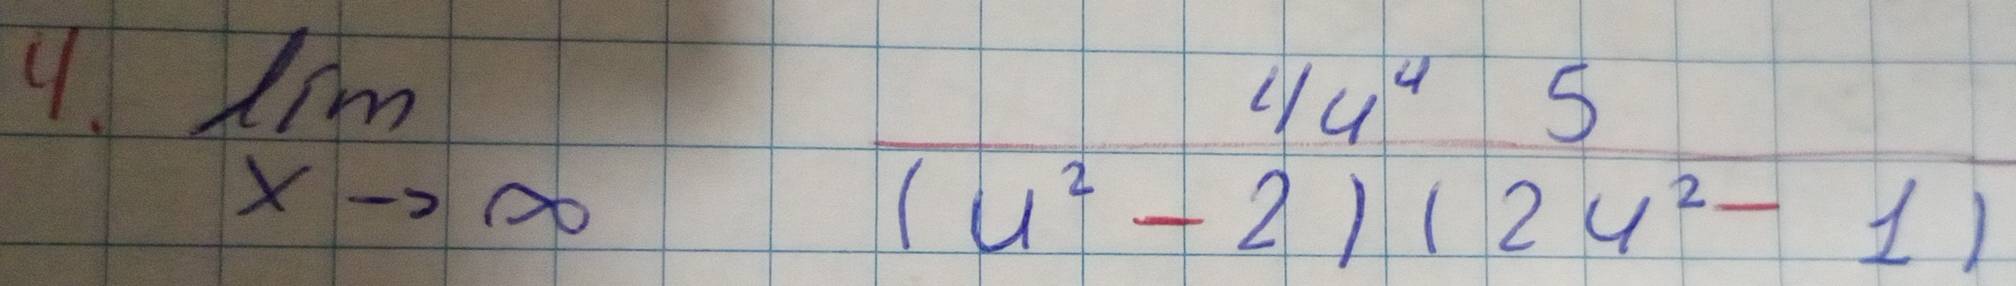 4. lim 4u⁴ 5
x → ∞ (u² - 2)(2u² - 1)